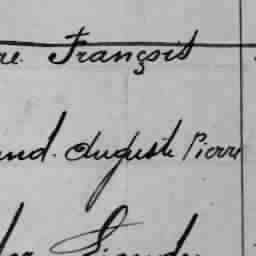 re François
and. Auguste Pierre